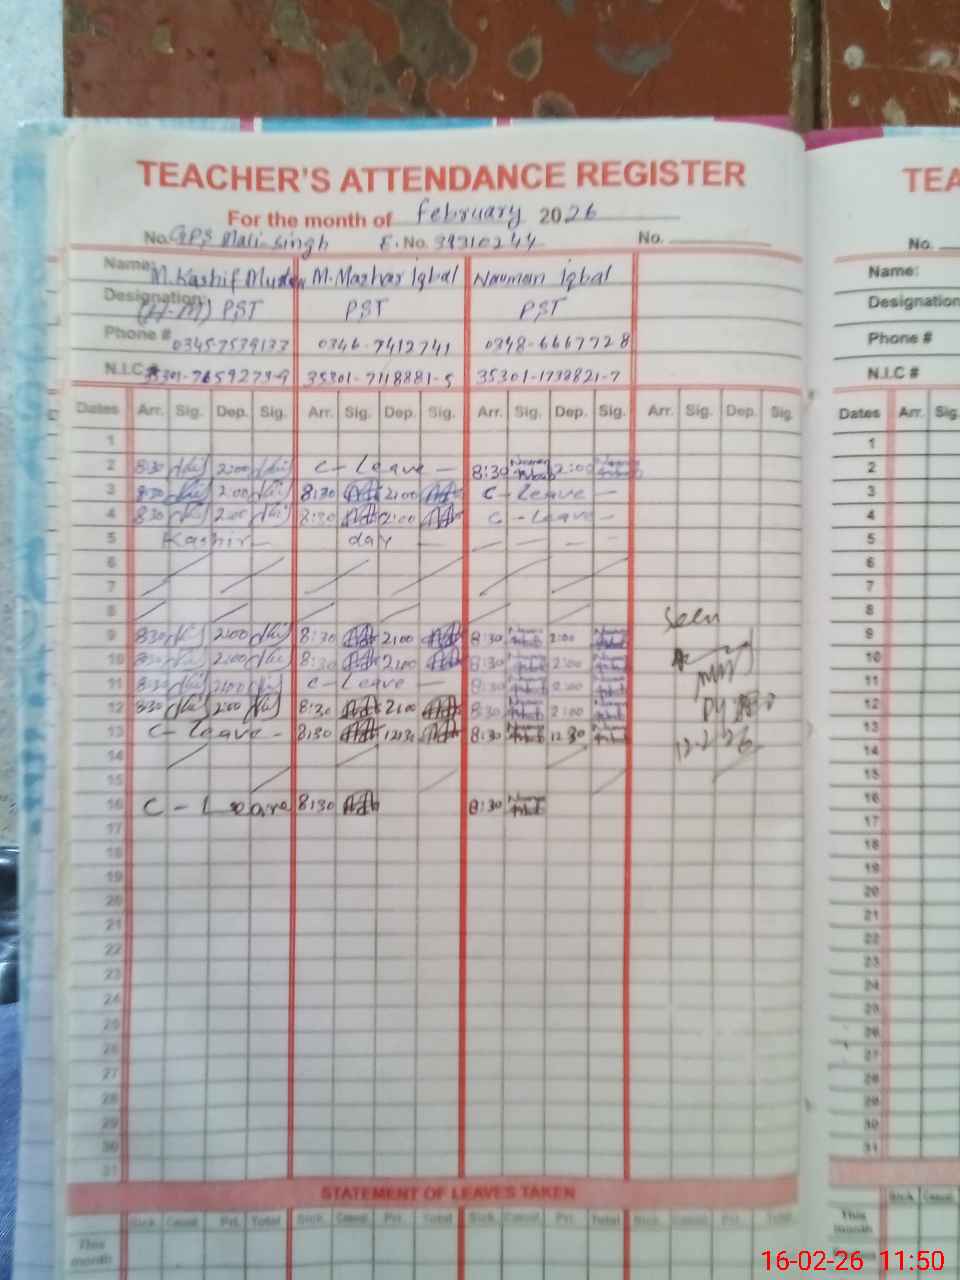 TEACHER'S ATTENDANCE REGISTER
For the month of February 2026
No. GPS Mali Singh E. No. 39310244 No.
Name: M. Kashif M. Mazhar Iqbal Nauman Iqbal
Designation (H-M) PST PST PST
Phone # 0346-7412741 0348-6667728
N.I.C # 35301-7118881-5 35301-1738821-7
Dates Arr. Sig. Dep. Sig. Arr. Sig. Dep. Sig. Arr. Sig. Dep. Sig. Arr. Sig. Dep. Sig.
1
2 8:30 2:00 C - Leave - 8:30 2:00
3 8:30 2:00 8:30 2:00 C - Leave -
4 8:30 2:00 8:30 2:00 C - Leave -
5 Kashir - day -
6
7
8
Seen
9 8:30 2:00 8:30 2:00 8:30 2:00
10 8:30 2:00 8:30 2:00 8:30 2:00
11 8:30 2:00 C - Leave - 8:30 2:00
12 8:30 2:00 8:30 2:00 8:30 2:00
13 C - Leave - 8:30 12:30 8:30 12:30
14
15
16 C - Leave 8:30 8:30
17
18
19
20
21
22
23
24
25
26
27
28
29
30
31
STATEMENT OF LEAVES TAKEN
Sick. Casual Pri. Total Sick. Casual Pri. Total Sick. Casual Pri. Total Sick. Casual Pri. Total
This month
TEA
No.
Name:
Designation
Phone #
N.I.C #
Dates Arr. Sig.
1
2
3
4
5
6
7
8
9
10
11
12
13
14
15
16
17
18
19
20
21
22
23
24
25
26
27
28
29
30
31
Sick. Casual
This month
16-02-26 11:50